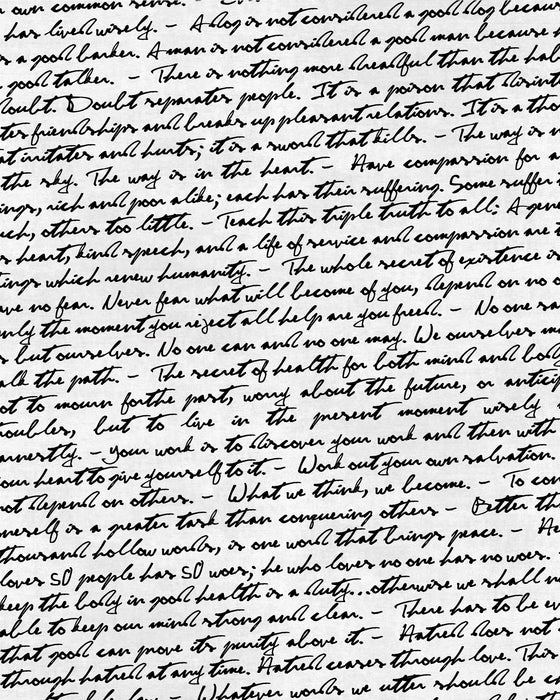 own common sense.
has lived wisely. – A dog is not considered a good dog becau
s a good barker. A man is not considered a good man because h
good talker. – There is nothing more dreadful than the hab
doubt. Doubt separates people. It is a poison that disin
tes friendships and breaks up pleasant relations. It is a tho
at irritates and hurts; it is a sword that kills. – The way is n
the sky. The way is in the heart. – Have compassion for a
ings, rich and poor alike; each has their suffering. Some suffer t
uch, others too little. – Teach this triple truth to all: A gene
s heart, kind speech, and a life of service and compassion are t
ings which renew humanity. – The whole secret of existence is
ave no fear. Never fear what will become of you, depend on no o
nly the moment you reject all help are you freed. – No one sa
s but ourselves. No one can and no one may. We ourselves m
alk the path. – The secret of health for both mind and bod
ot to mourn for the past, worry about the future, or anticip
roubles, but to live in the present moment wisely
arnestly. – your work is to discover your work and then with
our heart to give yourself to it. – Work out your own salvation.
not depend on others. – What we think, we become. – To con
neself is a greater task than conquering others – Better th
thousand hollow words, is one word that brings peace. – He
loves 50 people has 50 woes; he who loves no one has no woes.
keep the body in good health is a duty...otherwise we shall n
able to keep our mind strong and clear. – There has to be ev
that good can prove its purity above it. – Hatred does not
through hatred at any time. Hatred ceases through love. This
Whatever words we utter should be c